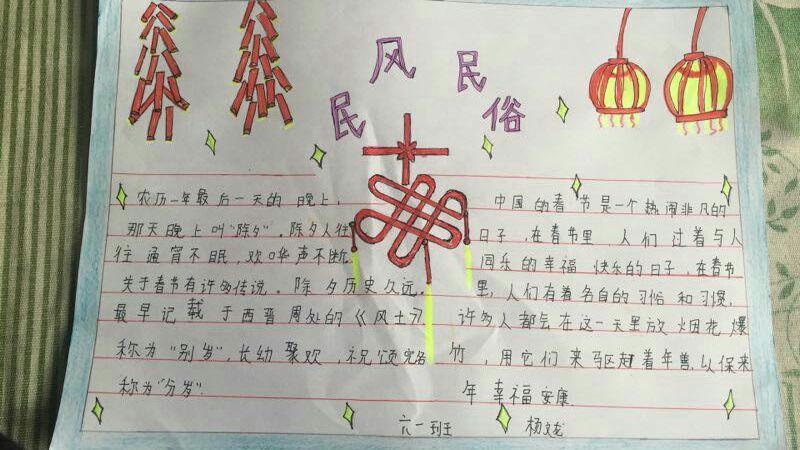 民风民俗
农历一年最后一天的晚上,
那天晚上叫"除夕"。除夕人往
往通宵不眠,欢哗声不断.
关于春节有许多传说。除夕历史久远,
最早记载于西晋周处的《风土》
称为"别岁",长幼聚欢,祝颂完备
称为"分岁".
中国的春节是一个热闹非凡的
日子,在春节里 人们过着与人
同乐的幸福快乐的日子,在春节
里,人们有着各自的习俗和习惯,
许多人都会在这一天里放烟花爆
竹,用它们来驱赶着年兽,以保来
年幸福安康.
六一班 杨文龙